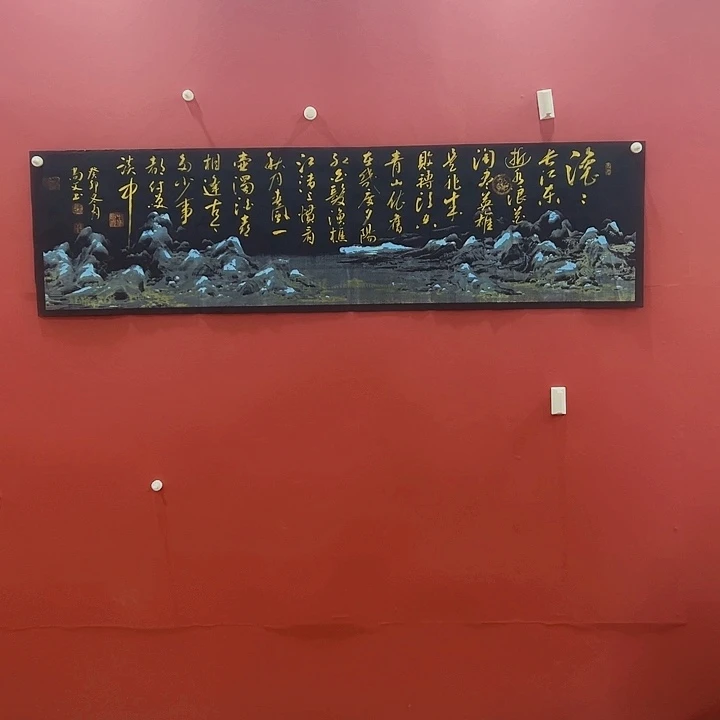 滚〻
长江东
逝水浪花
淘尽英雄
是非成
败轉头空
青山依舊
在幾度夕陽
红白髮漁樵
江渚上慣看
秋月春風一
壶濁酒喜
相逢古今
多少事
都付笑
談中
癸卯冬月